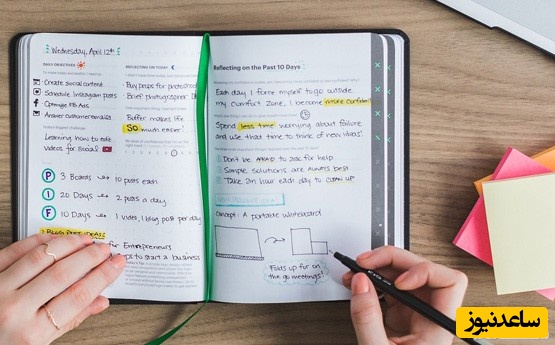 Wednesday, April 12th
DAILY OBJECTIVES
Create social content
Schedule Instagram posts
Optimize FB Ads
Answer customer emails
Learning how to edit
videos for social
P 3 Boards 10 posts each
I 20 Days 2 posts a day
F 10 Days 1 video, 1 blog post per day
BLOG POST IDEAS:
for Entrepreneurs
to start a business
REFLECTING ON TODAY
Buy props for photoshoot
Brief photographer
Buffer makes life
SO much easier!
Reflecting on the Past 10 Days
Each day I force myself to go outside
my comfort zone, I become more confident
Spend less time worrying about failure
and use that time to think of new ideas!
Don't be AFRAID to ask for help
Simple solutions are ALWAYS BEST
Take 2 min hour each day to CLEAN UP
NEW PRODUCT IDEA
Concept: A portable whiteboard
Folds up for on
the go meetings!
ساعدنیوز